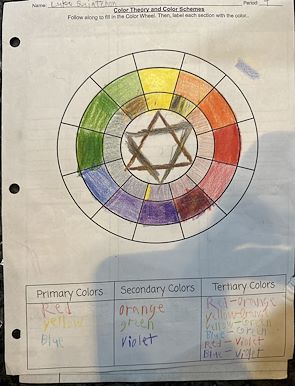 Name: Luke
Period:
Color Theory and Color Schemes
Follow along to fill in the Color Wheel. Then, label each section with the color.
Primary Colors
Red
yellow
Blue
Secondary Colors
orange
green
violet
Tertiary Colors
Red-orange
yellow-orange
yellow-Green
Blue-Green
Red-violet
Blue-violet